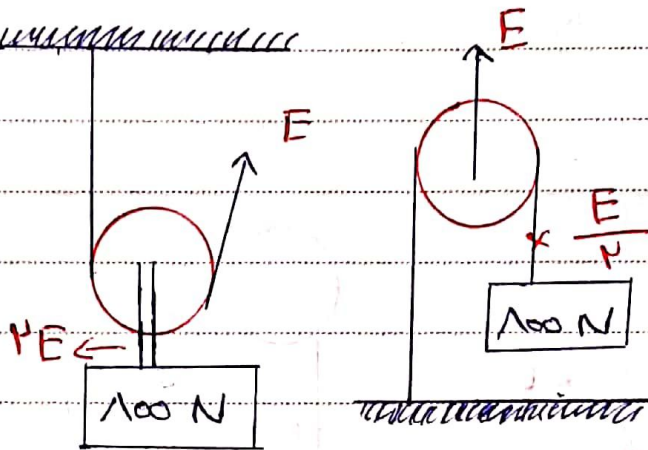 E
۲E
۸۰۰ N
E
E
۲
۸۰۰ N